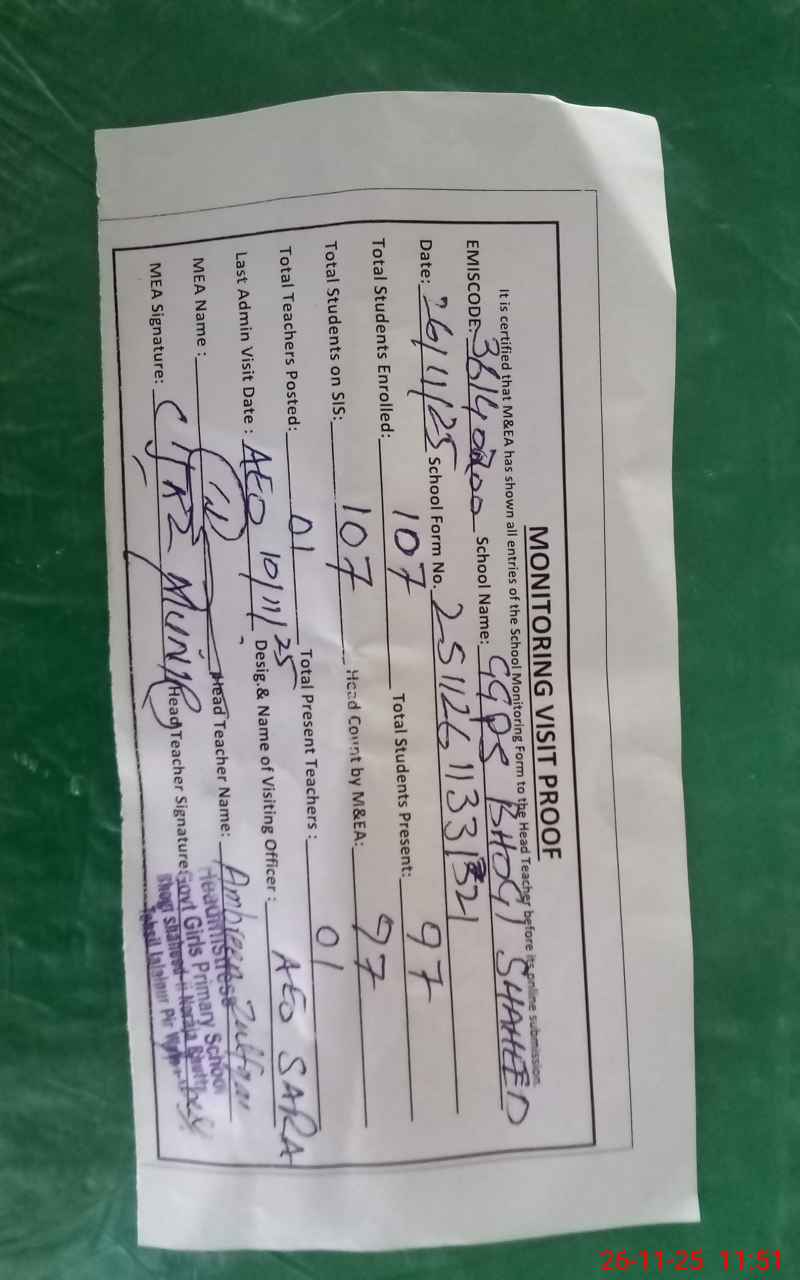 MONITORING VISIT PROOF
It is certified that M&EA has shown all entries of the School Monitoring Form to the Head Teacher before its online submission.
EMISCODE: School Name: GGPS BHOGI SHAHEED
Date: 26/11/25 School Form No.
Total Students Enrolled: 107 Total Students Present: 97
Total Students on SIS: 107 Head Count by M&EA: 97
Total Teachers Posted: 01 Total Present Teachers : 01
Last Admin Visit Date : AEO 10/11/25 Desig.& Name of Visiting Officer : AEO SARA
MEA Name : Head Teacher Name: Ambreen Zulfqar
MEA Signature: MUNIR Head Teacher Signature:
Headmistress
Govt Girls Primary School
Bhogi Shaheed
Tehsil Jalalpur Pir
26-11-25 11:51